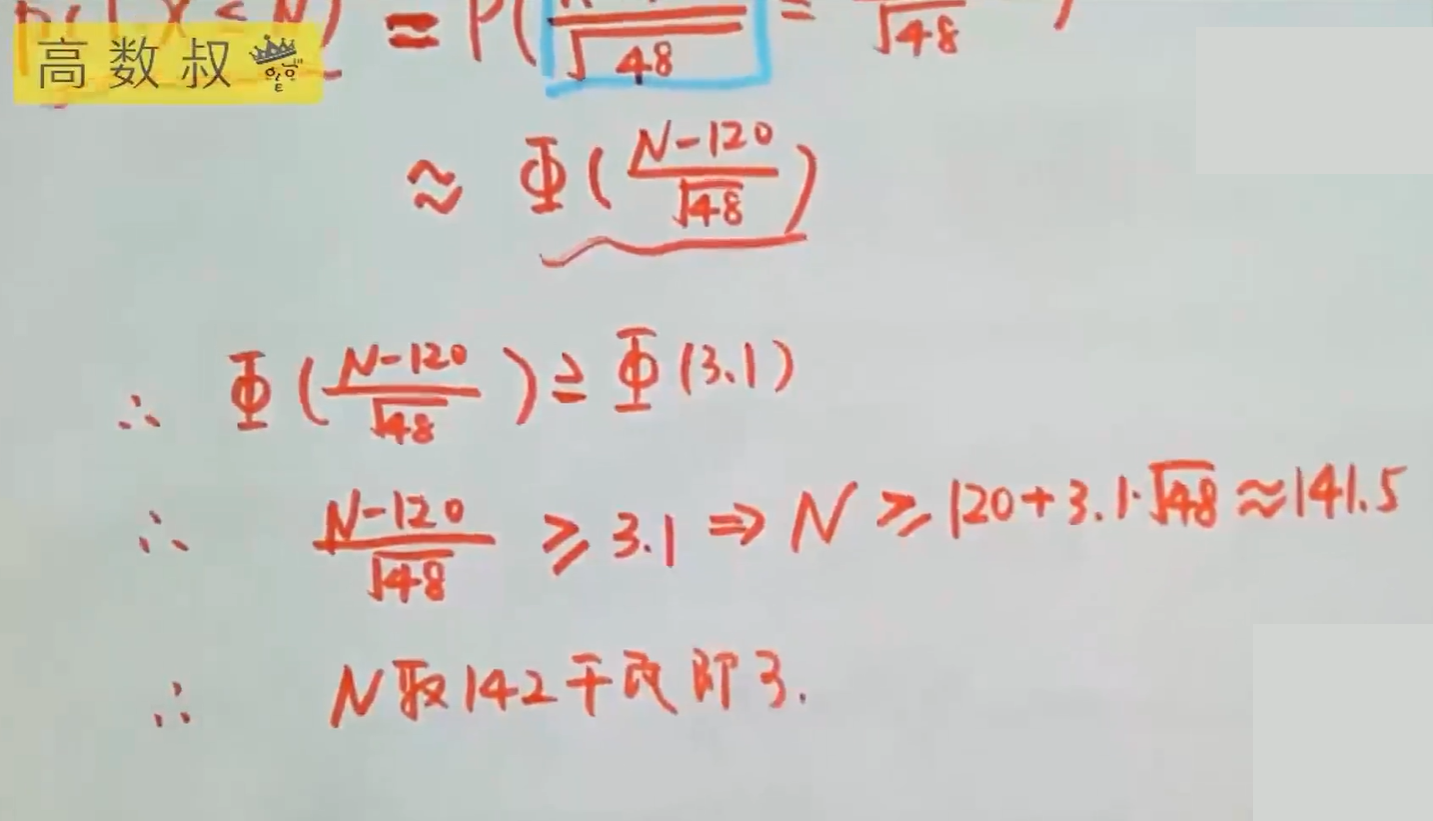 P(1·X≤N) = P( /√48 ≤ /√48 )
高数叔
≈ Φ(N-120/√48)
∴ Φ(N-120/√48) ≥ Φ(3.1)
∴ N-120/√48 ≥ 3.1 ⇒ N ≥ 120+3.1·√48 ≈ 141.5
∴ N取142千瓦即可.